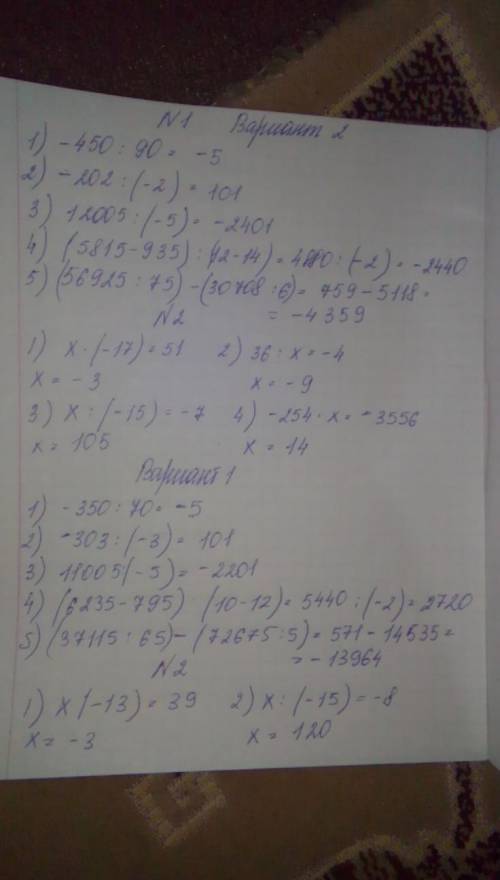 N1 Вариант 2
1) -450 : 90 = -5
2) -202 : (-2) = 101
3) 12005 : (-5) = -2401
4) (5815-935) : (12-14) = 4880 : (-2) = -2440
5) (56925 : 75) - (30708 : 6) = 759 - 5118 =
= -4359
N2
1) x · (-17) = 51 2) 36 : x = -4
x = -3 x = -9
3) x : (-15) = -7 4) -254 · x = -3556
x = 105 x = 14
Вариант 1
1) -350 : 70 = -5
2) -303 : (-3) = 101
3) 11005 (-5) = -2201
4) (6235-795) (10-12) = 5440 : (-2) = 2720
5) (37115 : 65) - (72675 : 5) = 571 - 14535 =
= -13964
N2
1) x (-13) = 39 2) x : (-15) = -8
x = -3 x = 120